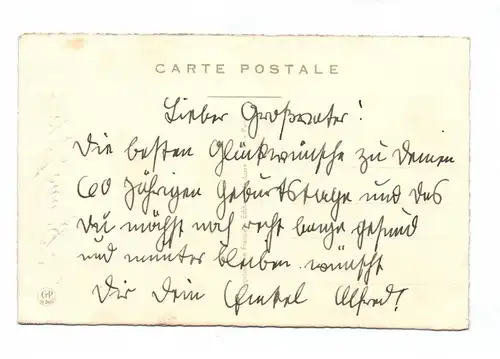 CARTE POSTALE
Lieber Großvater!
Die besten Glückwünsche zu deinen
60 Jährigen Geburtstage und das
Du möchst noch recht lange gesund
und munter bleiben wünscht
Dir Dein Enkel Alfred!
GP